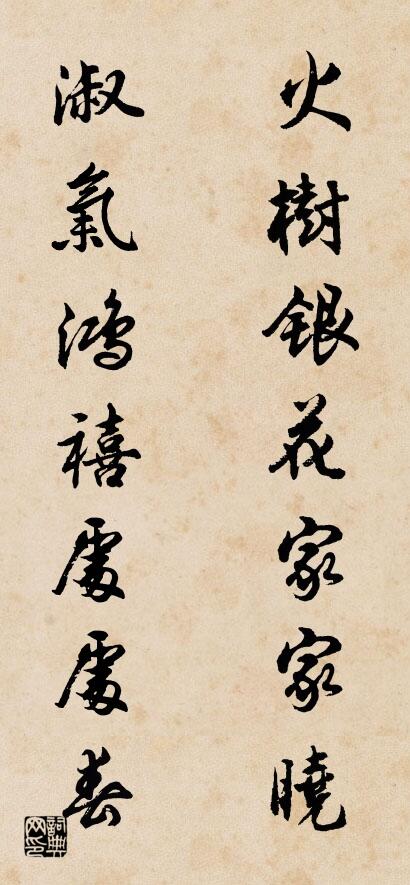 火樹銀花家家曉
淑氣鴻禧處處春
詞典網印